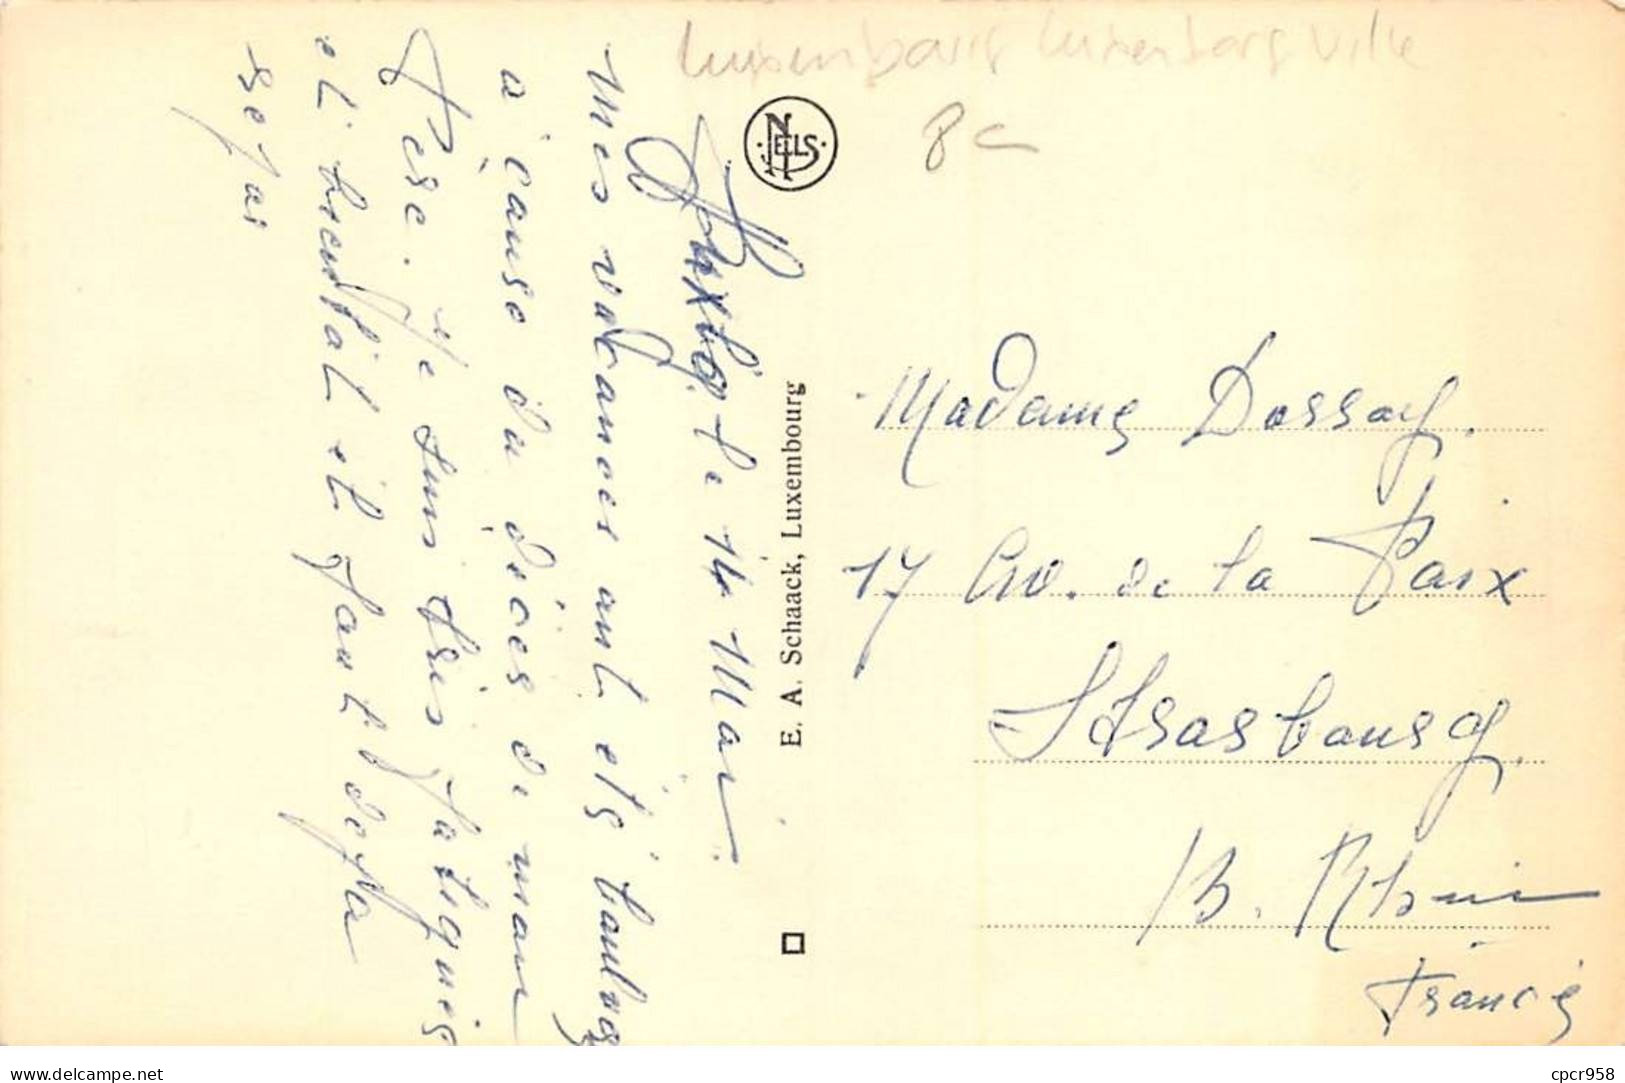 Luxembourg Luxembourg Ville
8€
NELS
Luxbg. le 14 Mai
Mes vacances ont été boulv
à cause du décès de mon
Père. Je suis très fatiguée
et bientôt il faut dé
E. A. Schaack, Luxembourg
Madame Dossay.
17 Av. de la Paix
Strasbourg.
B. Rhin
France
delcampe.net
cpcr958